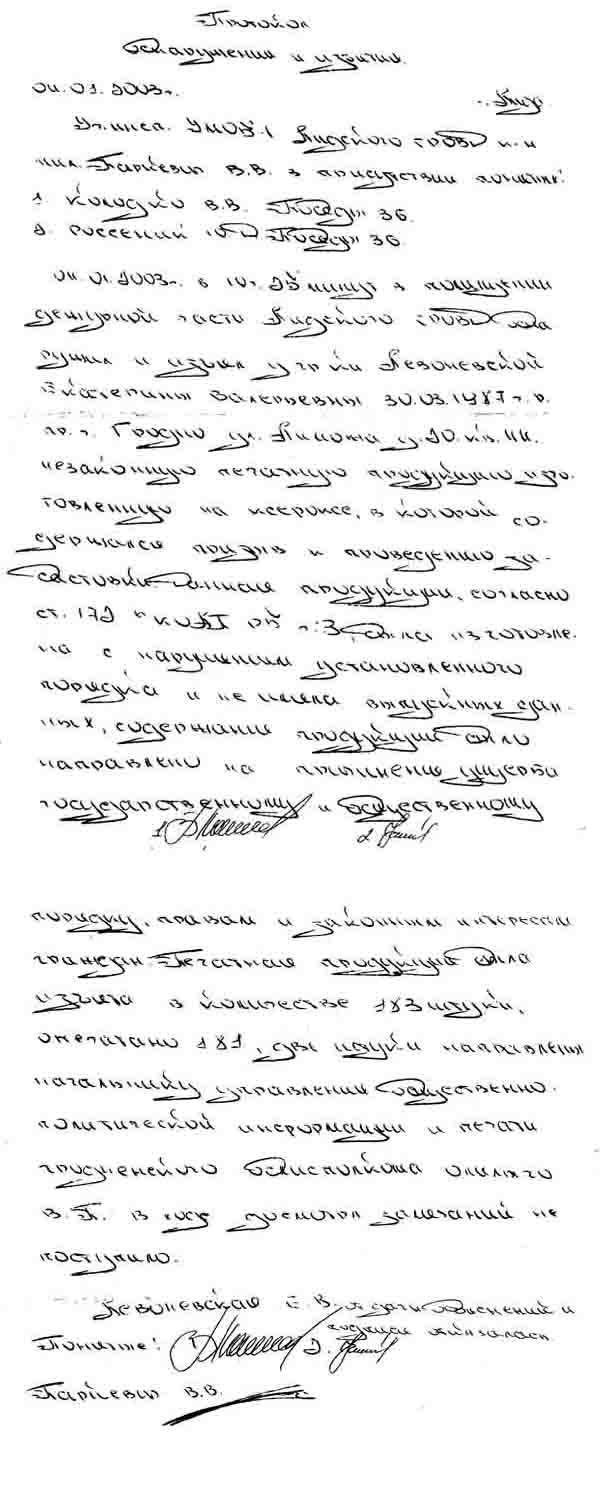 Протокол
обнаружения и изъятия.
04.01.2003г. г. Лида
Уч. инсп. УМОБ-1 Лидского ГРОВД к-н
мил. Таркевич В.В. в присутствии понятых:
1. Колодко В.В. Победы 36.
2. Россений Победы 36.
04.01.2003г. в 10ч. 25 минут в помещении
дежурной части Лидского ГРОВД обна
ружил и изъял у гр-ки Левоневской
Екатерины Валерьевны 30.03.1987г.р.
пр. г. Гродно ул. Лиможа д. 20. кв. 44.
незаконную печатную продукцию изго-
товленную на ксероксе, в которой со-
держался призыв к проведению за-
бастовки. Данная продукция, согласно
ст. 172 КоАП РБ ч. 3 была изготовле-
на с нарушением установленного
порядка и не имела выпускных дан-
ных, содержание продукции было
направлено на причинение ущерба
государственному и общественному
1. 2.
порядку, правам и законным интересам
граждан. Печатная продукция была
изъята в количестве 183 штуки,
опечатано 181, две штуки направлены
начальнику управления общественно-
политической информации и печати
гродненского облисполкома
В.П. В ходе досмотра замечаний не
поступило.
Левоневская Е.В. от дачи объяснений и
подписи отказалась
Понятые: 1. 2.
Таркевич В.В.